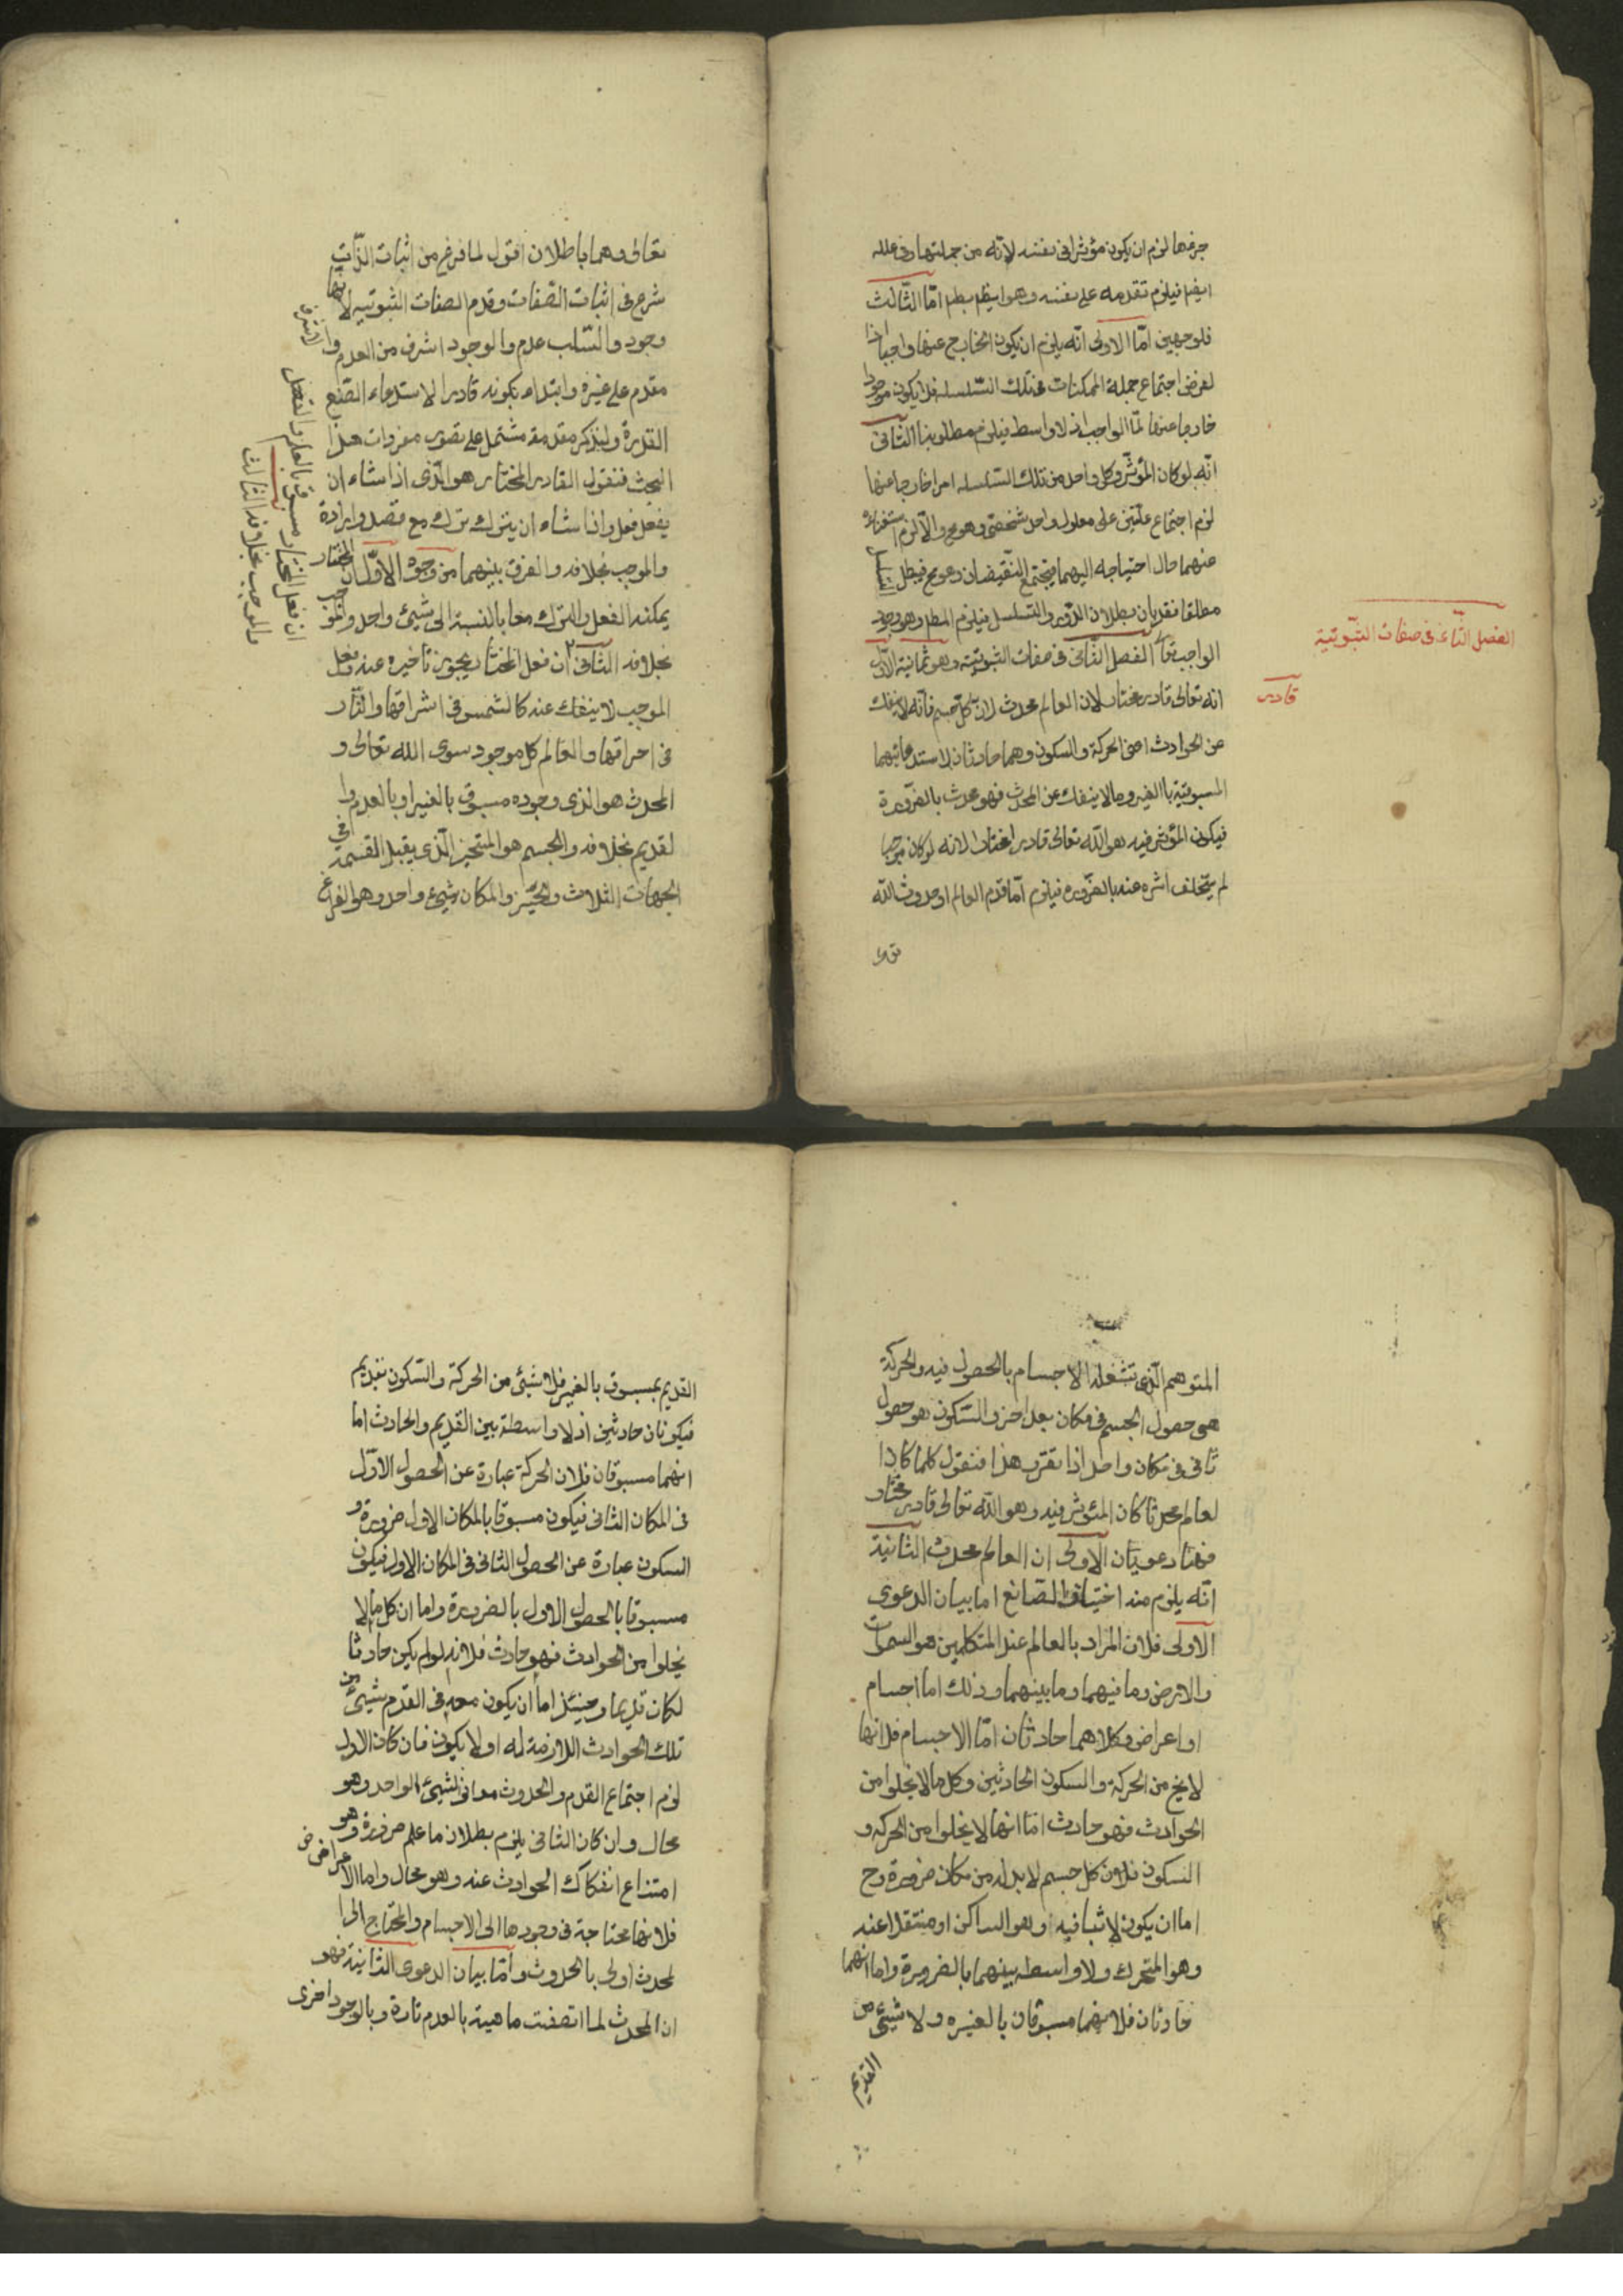 جزءها لزم ان يكون مؤثرا في نفسه لانه من جملتها وفي علله
ايضا فيلزم تقدمه على نفسه وهو ايضا بطم امّا الثّالث
فلوجهين امّا الاول انّه يلزم ان يكون الخارج عنها واجبا اذا
لفرض اجتماع جملة الممكنات في تلك السّلسله فلا يكون موجودا
خارجا عنها الّا الواجب اذ لا واسط فيلزم مطلوبنا الثّانى
انّه لو كان المؤثّر وكل واحد من تلك السّلسله امرا خارجا عنها
لزم اجتماع علّتين على معلول واحد شخصّى وهو مح والّا لزم استغناءه
عنهما حال احتياجه اليهما فيجتمع النّقيضان وهو مح فبطل التسلسل
مطلقا نقد بان بطلان الدّور والتسلسل فيلزم المط وهو وجود
الواجب تعا الفصل الثّانى فى صفات الثبوتية وهو ثمانية الاوّل
انه تعالى قادر مختار لان العالم محدث لان كلّ جسم فانه لا ينفك
عن الحوادث اعنى الحركة والسكون وهما حادثان لاستدعائهما
المسبوقية بالغير وما لا ينفك عن المحدث فهو محدث بالضرورة
فيكون المؤثر فيه هو الله تعالى قادرا مختارا لانه لو كان موجبا
لم يتخلف اثره عنه بالضّروره فيلزم امّا قدم العالم او حدوث الله
تعا
الفصل الثّانى فى صفات الثّبوتية
قادر
تعالى وهما باطلان اقول لما فرغ من اثبات الذّات
شرع فى اثبات الصّفات وقدم الصفات الثبوتيه لانها
وجود والسّلب عدم والوجود اشرف من العدم وا
لاشرف
مقدم على غيره وابتداء بكونه قادرا لاستدعاء الصّنع
القدرة ولنذكر مقدمة مشتمل على تصور مفردات هذا
البحث فنقول القادر المختار هو الّذى اذا شاء ان
يفعل فعل واذا شاء ان يترك ترك مع قصد وارادة
والموجب بخلافه والفرق بينهما من وجوه الاوّل ان المختار
يمكنه الفعل والترك معا بالنسبة الى شيئ واحد والموجب
بخلافه الثانى ان فعل المختار يجوز تاخيره عنه وفعل
الموجب لا ينفك عنه كالشمس فى اشراقها والنّار
فى احراقها والعالم كل موجود سوى الله تعالى و
المحدث هو الذى وجوده مسبوق بالغير او بالعدم وا
لقديم بخلافه والجسم هو المتحيز الّذى يقبل القسمة فى
الجهات الثلاث والحيّز والمكان شيئ واحد وهو الفراغ
ان فعل المختار مسبوق بالعلم والفعل
والموجب بخلافه الثالث
المتوهم الّذى تشغله الاجسام بالحصول فيه والحركة
هى حصول الجسم فى مكان بعد اخر والسّكون هو حصول
ثانى فى مكان واحد اذا تقرر هذا فنقول كلما كان ا
لعالم محدثا كان المئوثر فيه وهو الله تعالى قادر مختار
فهنا دعويان الاولى ان العالم محدث الثانية
انّه يلزم منه اختيار الصّانع اما بيان الدعوى
الاولى فلان المراد بالعالم عند المتكلمين هو السموات
والارض وما فيهما وما بينهما وذلك اما اجسام
او اعراض وكلاهما حادثان امّا الاجسام فلانها
لا يخ من الحركة والسكون الحادثين وكل ما لا يخلوا من
الحوادث فهو حادث امّا انها لا يخلوا من الحركه و
السكون فلان كل جسم لابد له من مكان ضرورة وح
اما ان يكون لابثا فيه وهو الساكن او منتقلا عنه
وهو المتحرك ولا واسطه بينهما بالضرورة واما انهما
حادثان فلانهما مسبوقان بالغيره ولا شيئ من
القديم
القديم بمسبوق بالغير فلا شيئ من الحركة والسّكون بقديم
فيكونان حادثين اذ لا واسطة بين القديم والحادث اما
انهما مسبوقان فلان الحركة عبارة عن الحصول الاوّل
فى المكان الثانى فيكون مسبوقا بالمكان الاول ضرورة و
السكون عبارة عن الحصول الثانى فى المكان الاول فيكون
مسبوقا بالحصول الاول بالضرورة واما ان كل ما لا
يخلوا من الحوادث فهو حادث فلانه لو لم يكن حادثا
لكان قديما وحينئذ اما ان يكون معه فى القدم شيئ من
تلك الحوادث اللازمة له او لا يكون فان كان الاول
لزم اجتماع القدم والحدوث معا فى الشيئ الواحد وهو
محال وان كان الثانى يلزم بطلان ما علم ضرورة وهو
امتناع انفكاك الحوادث عنه وهو محال واما الاعراض
فلانها محتاجة فى وجودها الى الاجسام والمحتاج الى ا
لمحدث اولى بالحدوث وامّا بيان الدعوى الثانية فهو
ان المحدث لما اتصفت ماهية بالعدم تارة وبالوجود اخرى